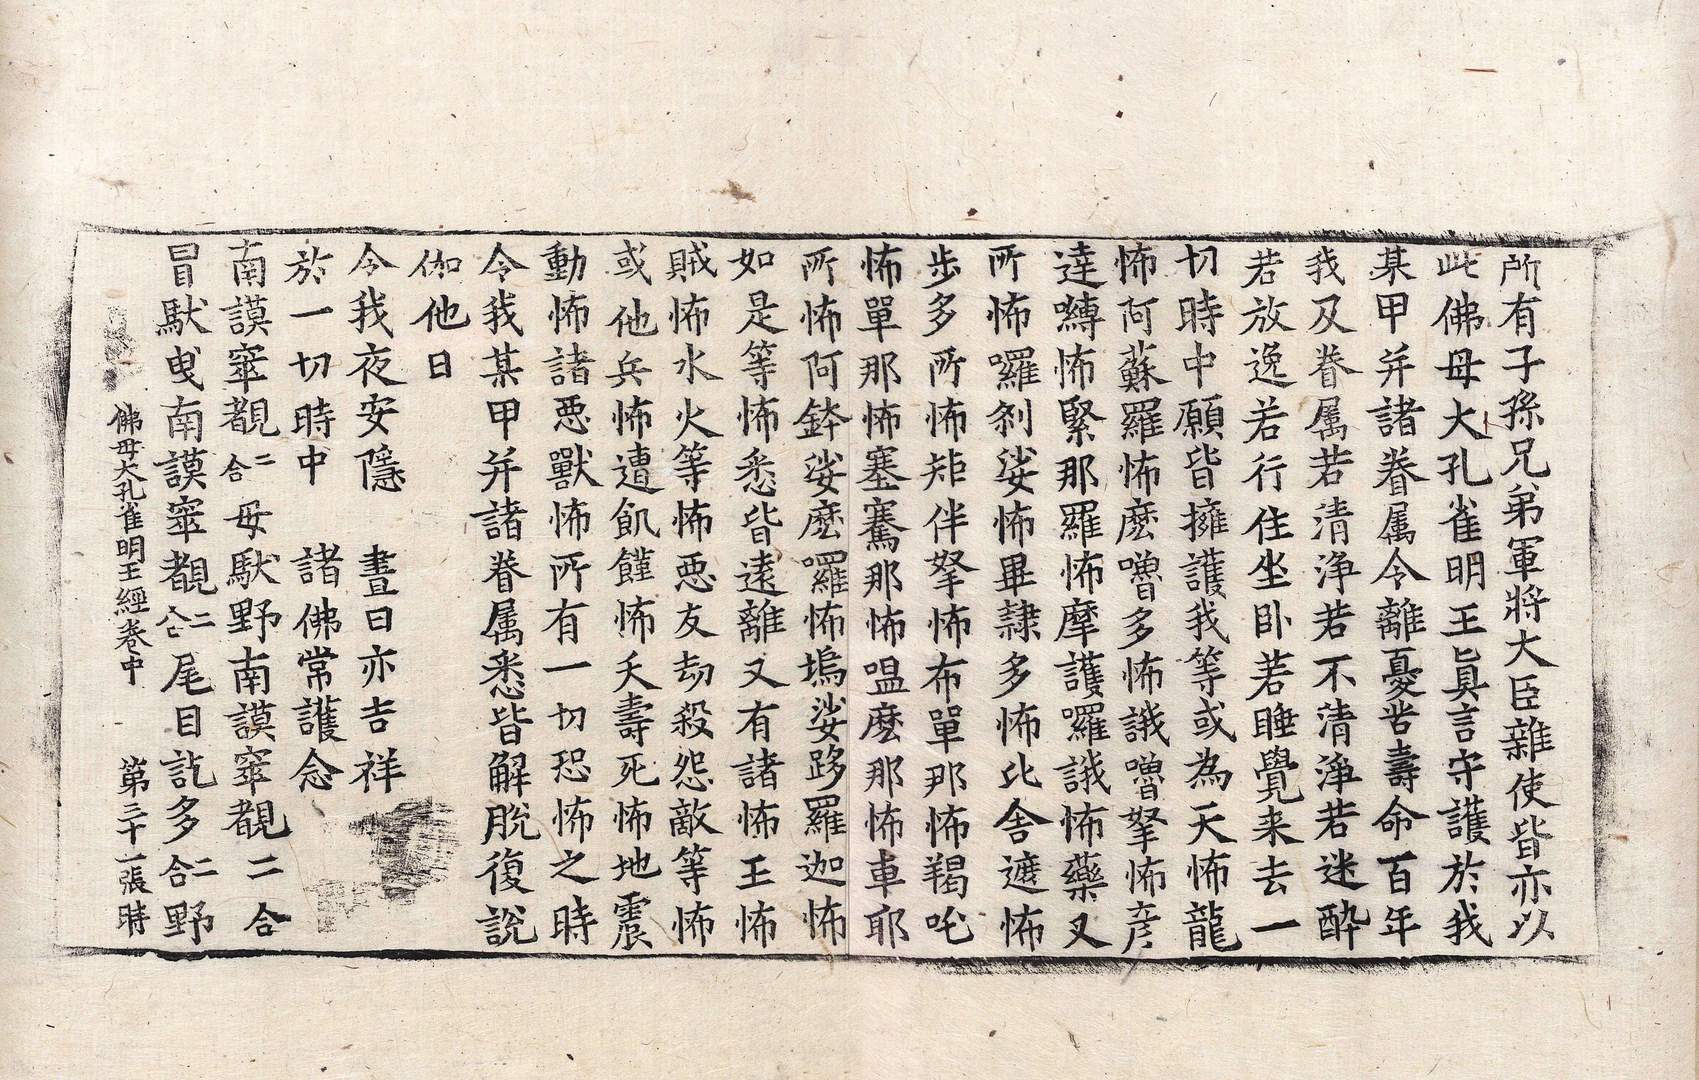 所有子孫兄弟軍將大臣雜使皆亦以
此佛母大孔雀明王眞言守護於我
某甲并諸眷属令離憂苦壽命百年
我及眷属若清淨若不清淨若迷醉
若放逸若行住坐卧若睡覺来去一
切時中願皆擁護我等或為天怖龍
怖阿蘇羅怖麽嚕多怖誐嚕拏怖彦
達嚩怖緊那羅怖摩護囉誐怖藥叉
所怖囉刹娑怖畢隷多怖比舍遮怖
步多所怖矩伴拏怖布單那怖羯吒
怖單那怖塞騫那怖嗢麽那怖車耶
所怖阿鉢娑麽囉怖塢娑跢羅迦怖
如是等怖悉皆遠離又有諸怖王怖
賊怖水火等怖惡友劫殺怨敵等怖
或他兵怖遭飢饉怖夭壽死怖地震
動怖諸惡獸怖所有一切恐怖之時
令我某甲并諸眷属悉皆解脫復說
伽他曰
令我夜安隱 晝日亦吉祥
於一切時中 諸佛常護念
南謨窣覩二合母馱野南謨窣覩二合
冒馱曳南謨窣覩二合尾目訖多二合野
佛母大孔雀明王經卷中 第三十一張時